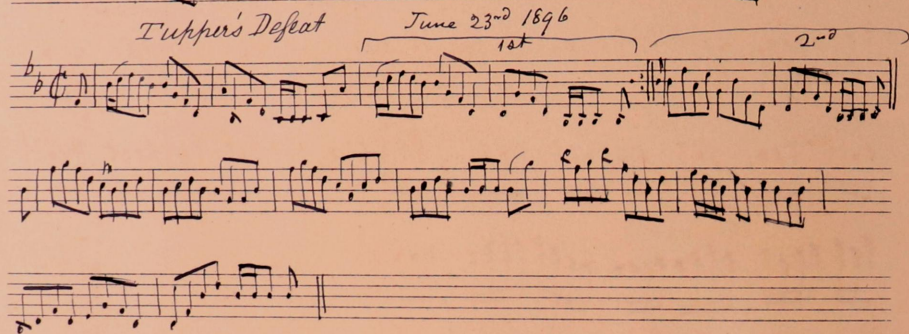 Tupper's Defeat
June 23nd 1896
1st
2nd